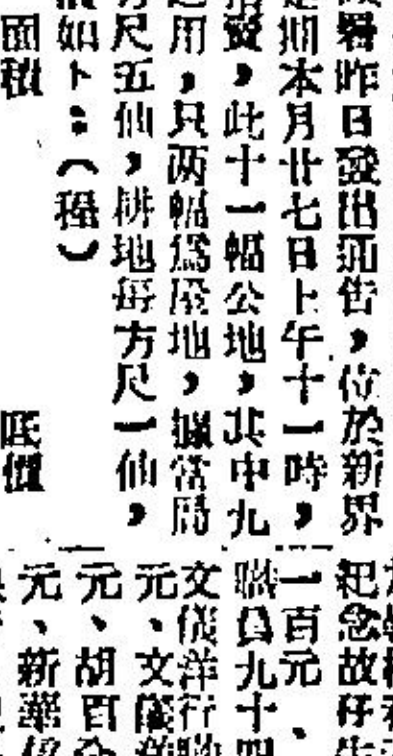 署昨日發出通告，位於新界
期本月廿七日上午十一時，
發，此十一幅公地，其中九
用，只两幅爲屋地，據當局
尺五仙，耕地每方尺一仙，
如下：（程）
面積　底價
紀念故
一百元、
職員九十四
文儀洋行
元、文儀
元、胡百
元、新華